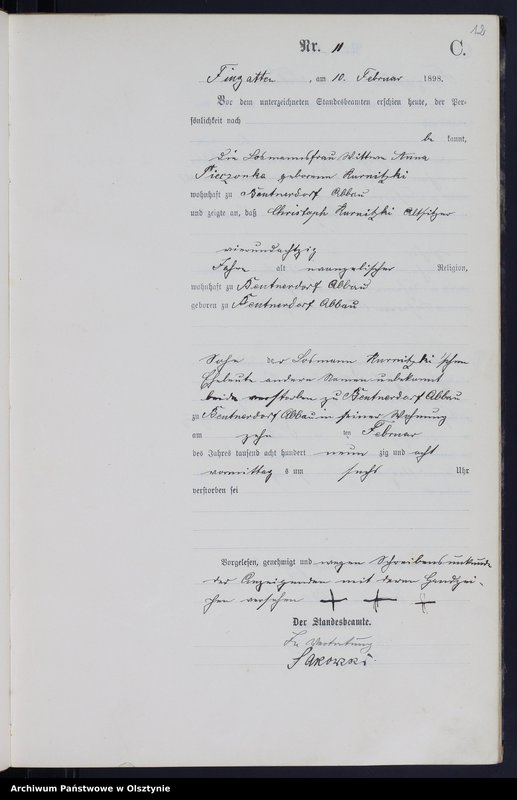 12
Nr. 11
C.
Fingatten, am 10. Februar 1898.
Vor dem unterzeichneten Standesbeamten erschien heute, der Per-
sönlichkeit nach
be kannt,
die Losmannsfrau Wittwe Anna
Pieczonka geborene Kurnitzki
wohnhaft zu Beutnerdorf Abbau
und zeigte an, daß Christoph Kurnitzki Altsitzer
vierundachtzig
Jahre alt evangelischer Religion,
wohnhaft zu Beutnerdorf Abbau
geboren zu Beutnerdorf Abbau
Sohn der Losmann Kurnitzki'schen
Eheleute andere Namen unbekannt
beide verstorben zu Beutnerdorf Abbau
zu Beutnerdorf Abbau in seiner Wohnung
am zehn ten Februar
des Jahres tausend acht hundert neun zig und acht
vormittag s um sechs Uhr
verstorben sei
Vorgelesen, genehmigt und wegen Schreibensunkunde
der Anzeigenden mit deren Handzei-
chen versehen
Der Standesbeamte.
In Vertretung
Sakowski
Archiwum Państwowe w Olsztynie